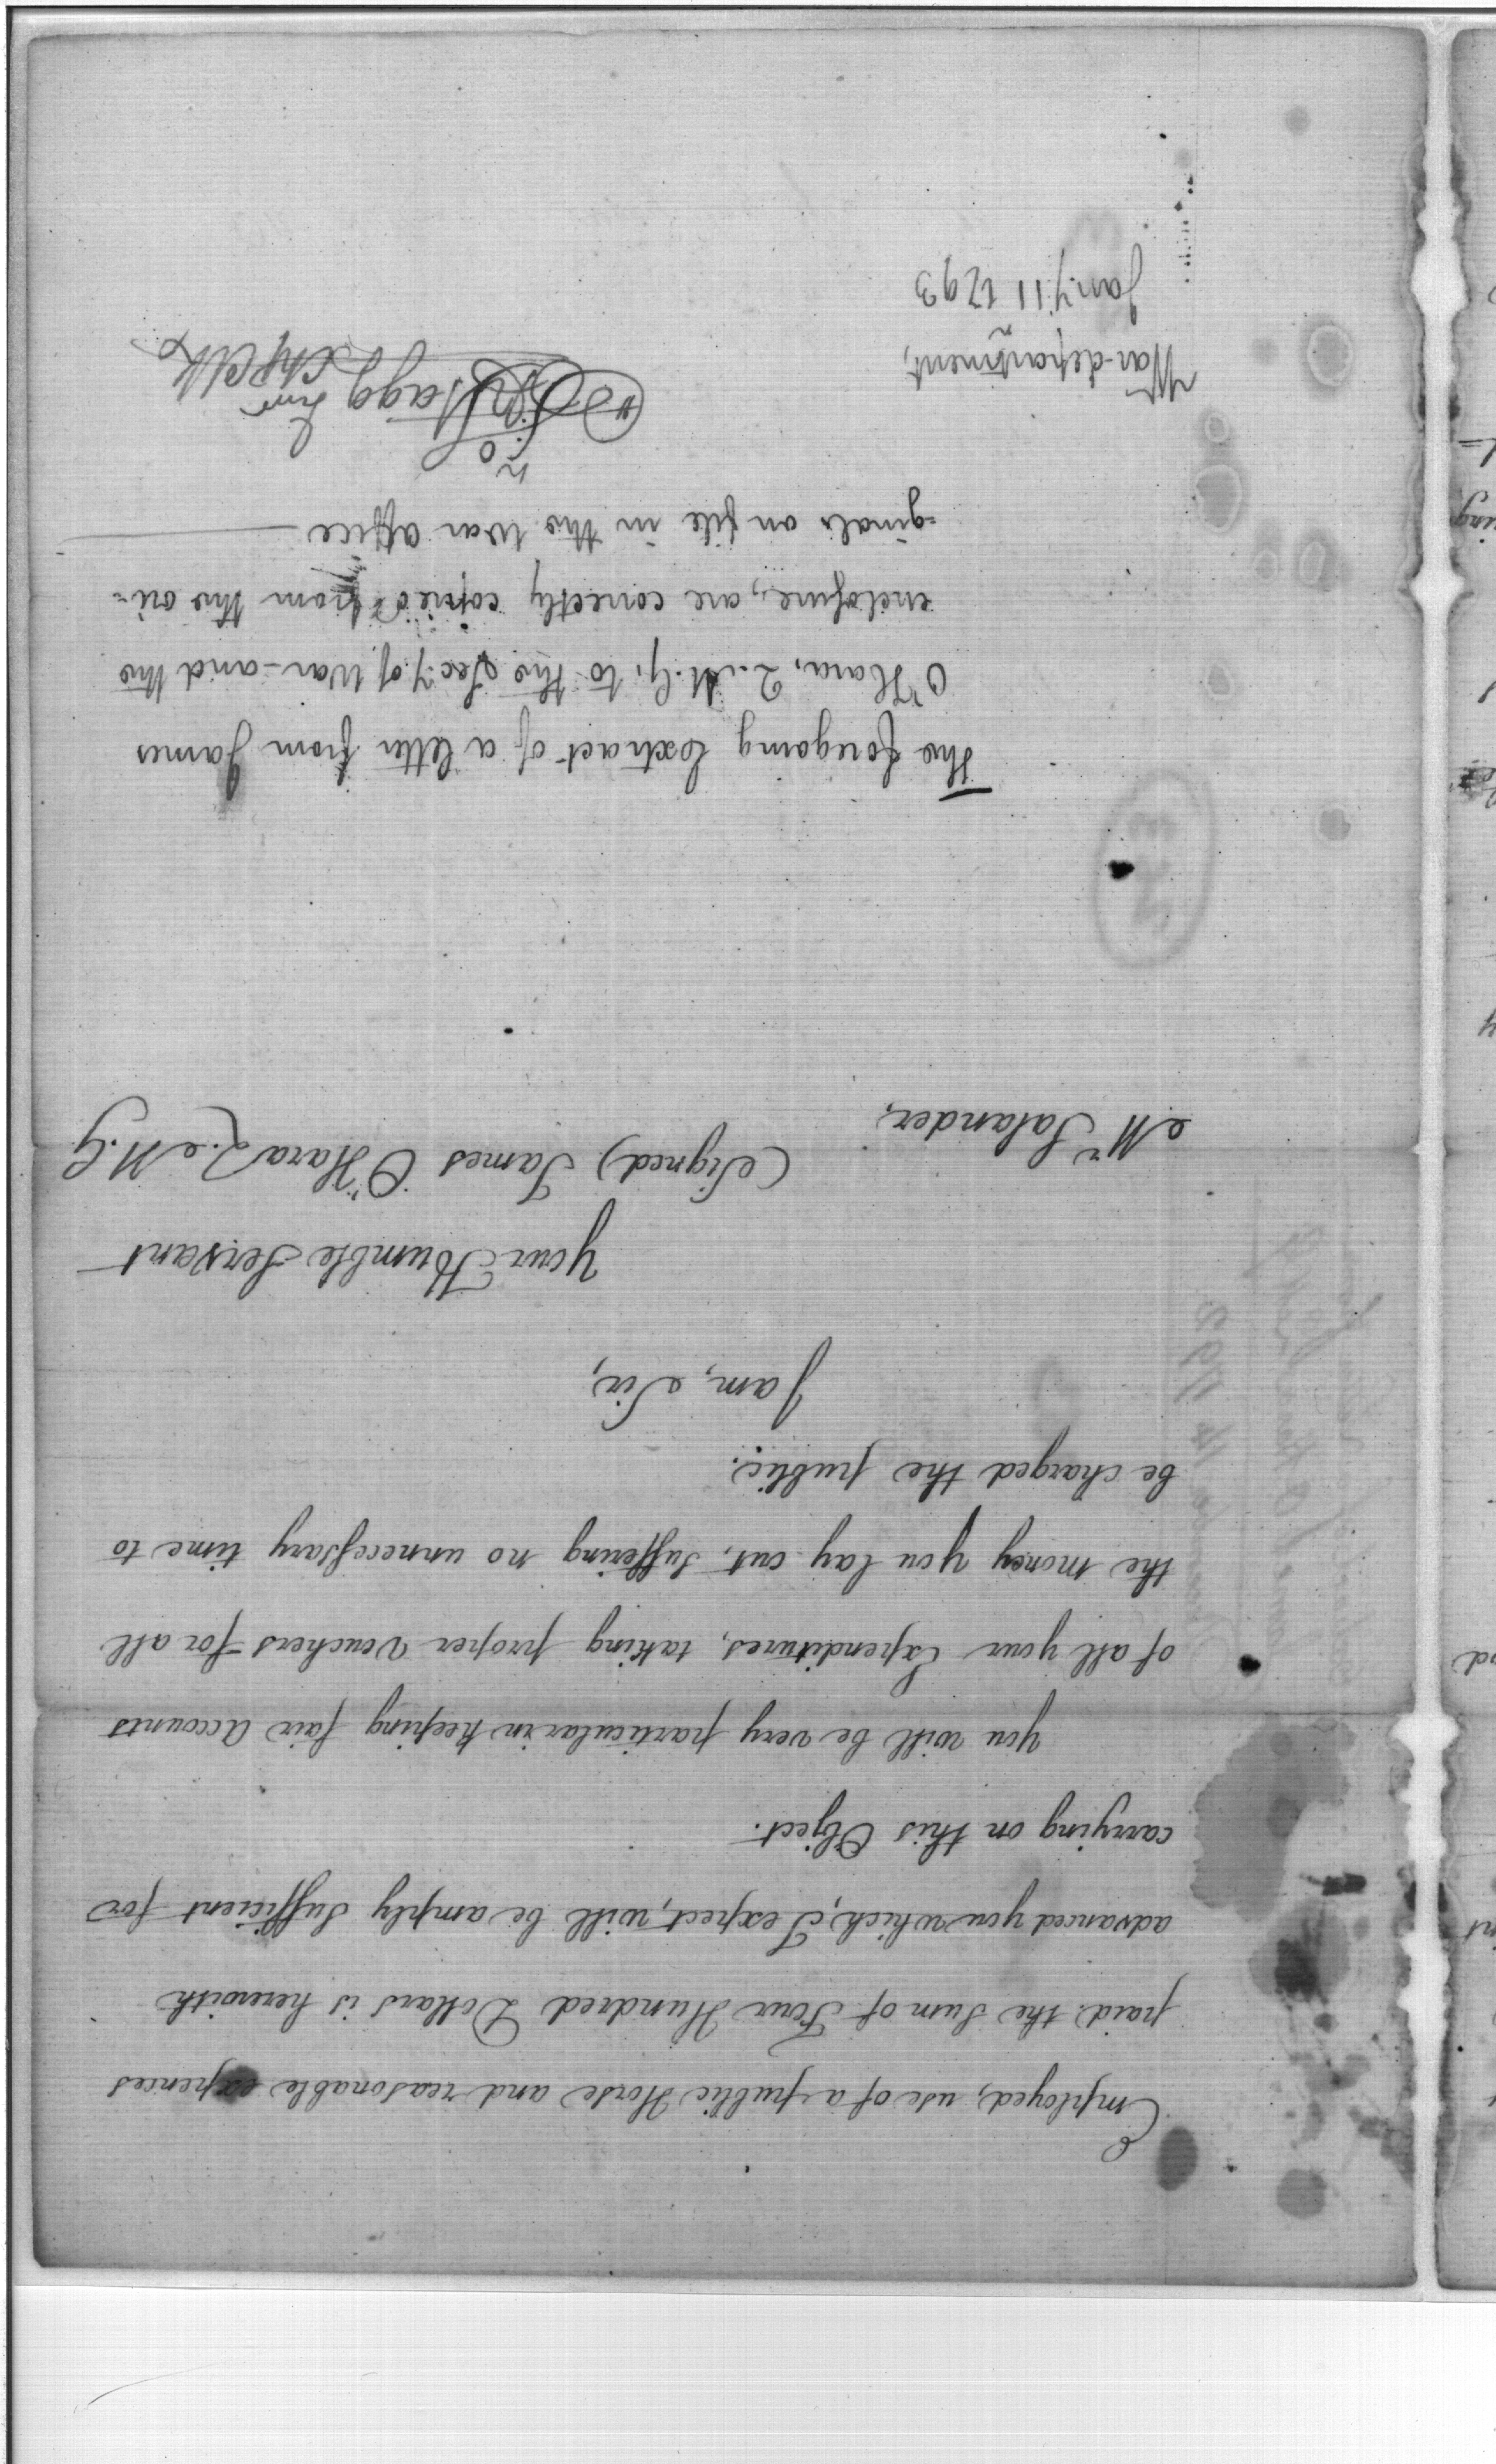 Employed, use of a public Horse and reasonable expences
paid. the Sum of Four Hundred Dollars is herewith
advanced you which, I expect, will be amply Sufficient for
carrying on this Object.
You will be very particular in keeping fair Accounts
of all your Expenditures, taking proper Vouchers for all
the money you lay out, Suffering no unnecessary time to
be charged the public.
I am, Sir,
Your Humble Servant
(Signed) James O'Hara Q. M. G
Mr Salander,
The foregoing Extract of a letter from James
O'Hara, Q. M. G, to the Secy of War - and the
enclosure, are correctly copied from the ori-
-ginals on file in the War office
Jno Stagg Junr
Chf Clk
War-department,
Jany 11 1793